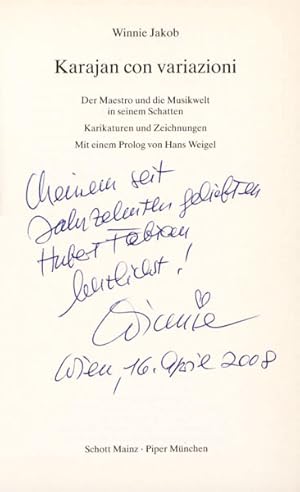 Winnie Jakob
Karajan con variazioni
Der Maestro und die Musikwelt
in seinem Schatten
Karikaturen und Zeichnungen
Mit einem Prolog von Hans Weigel
Meinem seit
Jahrzehnten geliebten
Hubert Fabian
herzlichst!
Winnie
Wien, 16. April 2008
Schott Mainz · Piper München